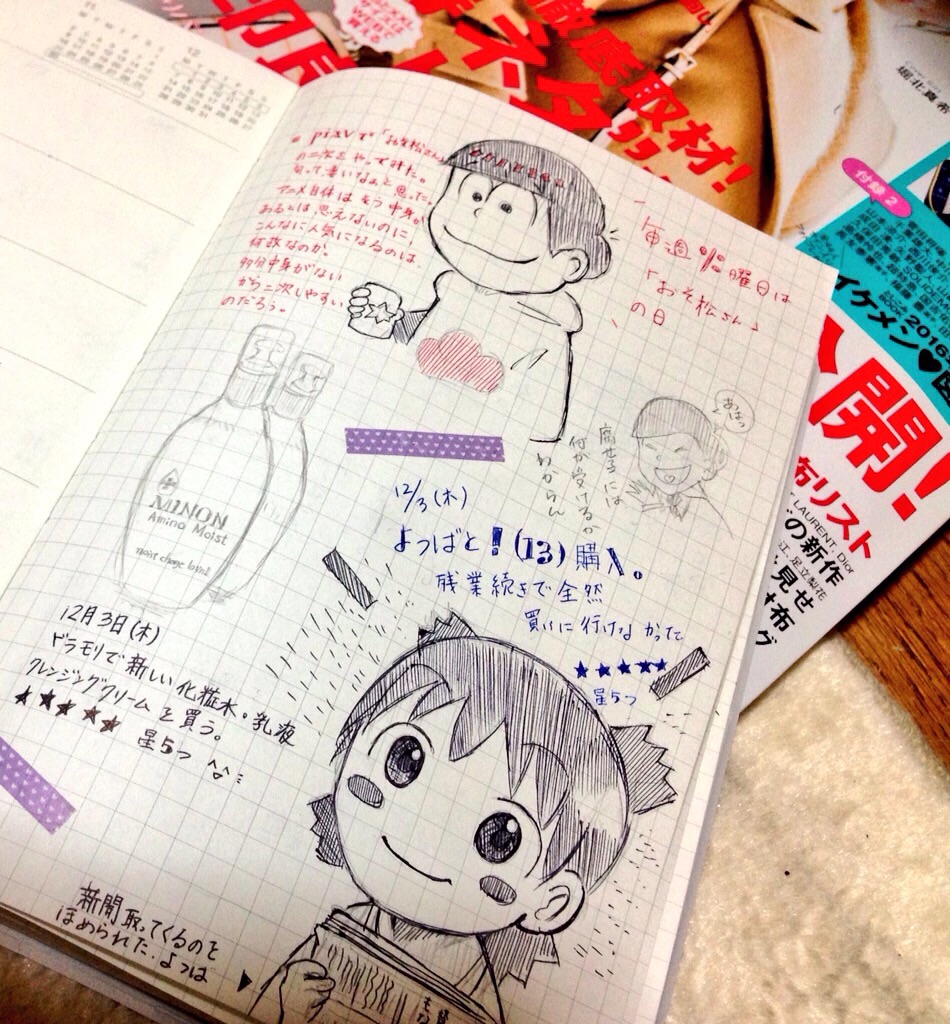 pixivで「おそ松さん」
の二次をやってみた。
アニメ自体はもう中身が
あるとは思えないのに
こんなに人気になるのは、
何故なのか。
多分中身がない
から二次しやすい
のだろう。
毎週火曜日は
「おそ松さん」
の日
あはっ
腐女子には
何が受けるか
わからん
MINON
Amino Moist
moist charge lotion
12/3(木)
よつばと!(13)購入。
残業続きで全然
買いに行けなかった
★★★★★
星5つ
12月3日(木)
ドラモリで新しい化粧水・乳液
クレンジングクリームを買う。
★★★★★ 星5つ
新聞取ってくるのを
ほめられた、よつば
徹底取材!
堀北真希
付録2
イケメン♥
2016
開!
布リスト
T LAURENT, Dior
の新作
江、足立梨花
見せ
布
グ